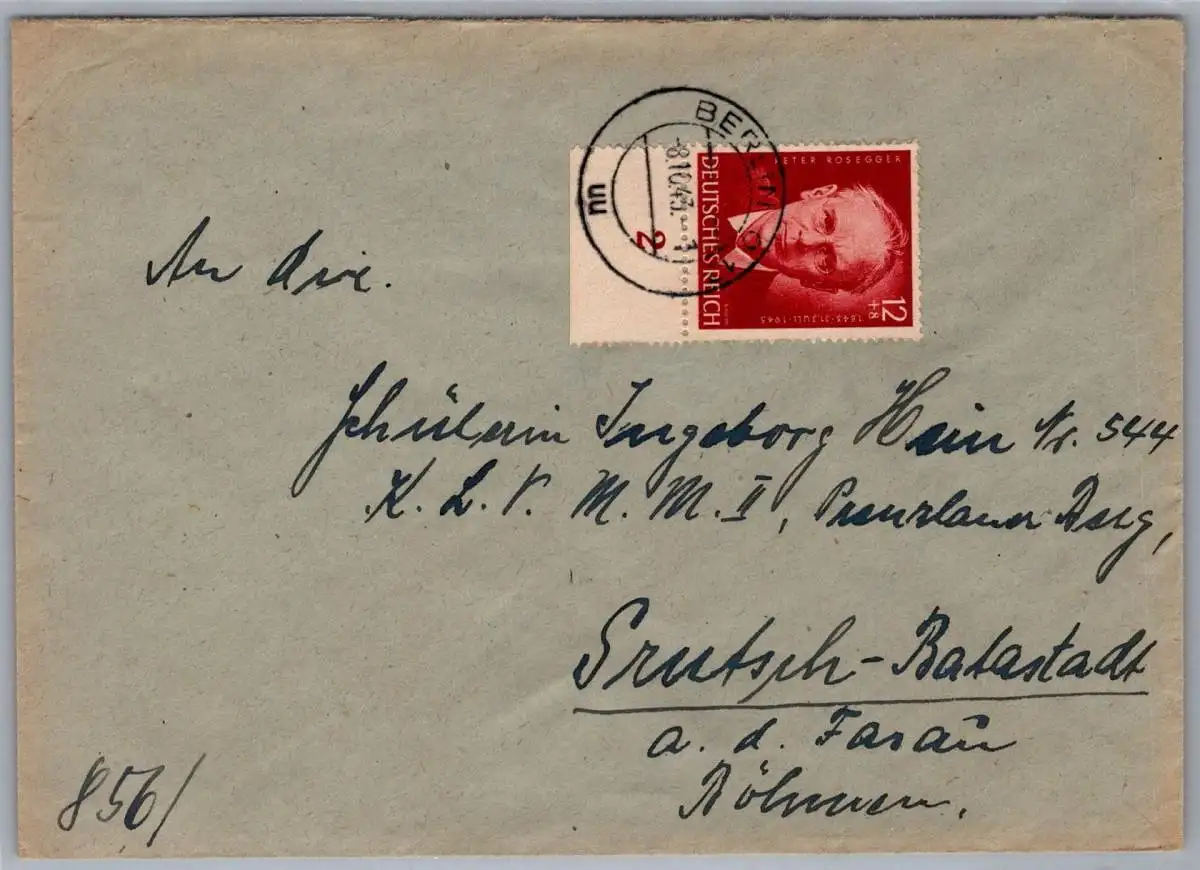 BERLIN
8.10.43. 1
nn
2
PETER ROSEGGER
DEUTSCHES REICH
12
+8
1843·31·JULI·1943
An die.
Schülerin Ingeborg Hein Nr. 544
K. L. V. M. M. II, Prenzlauer Berg,
Srutsch-Batastadt
a. d. Sasau
Böhmen.
856/